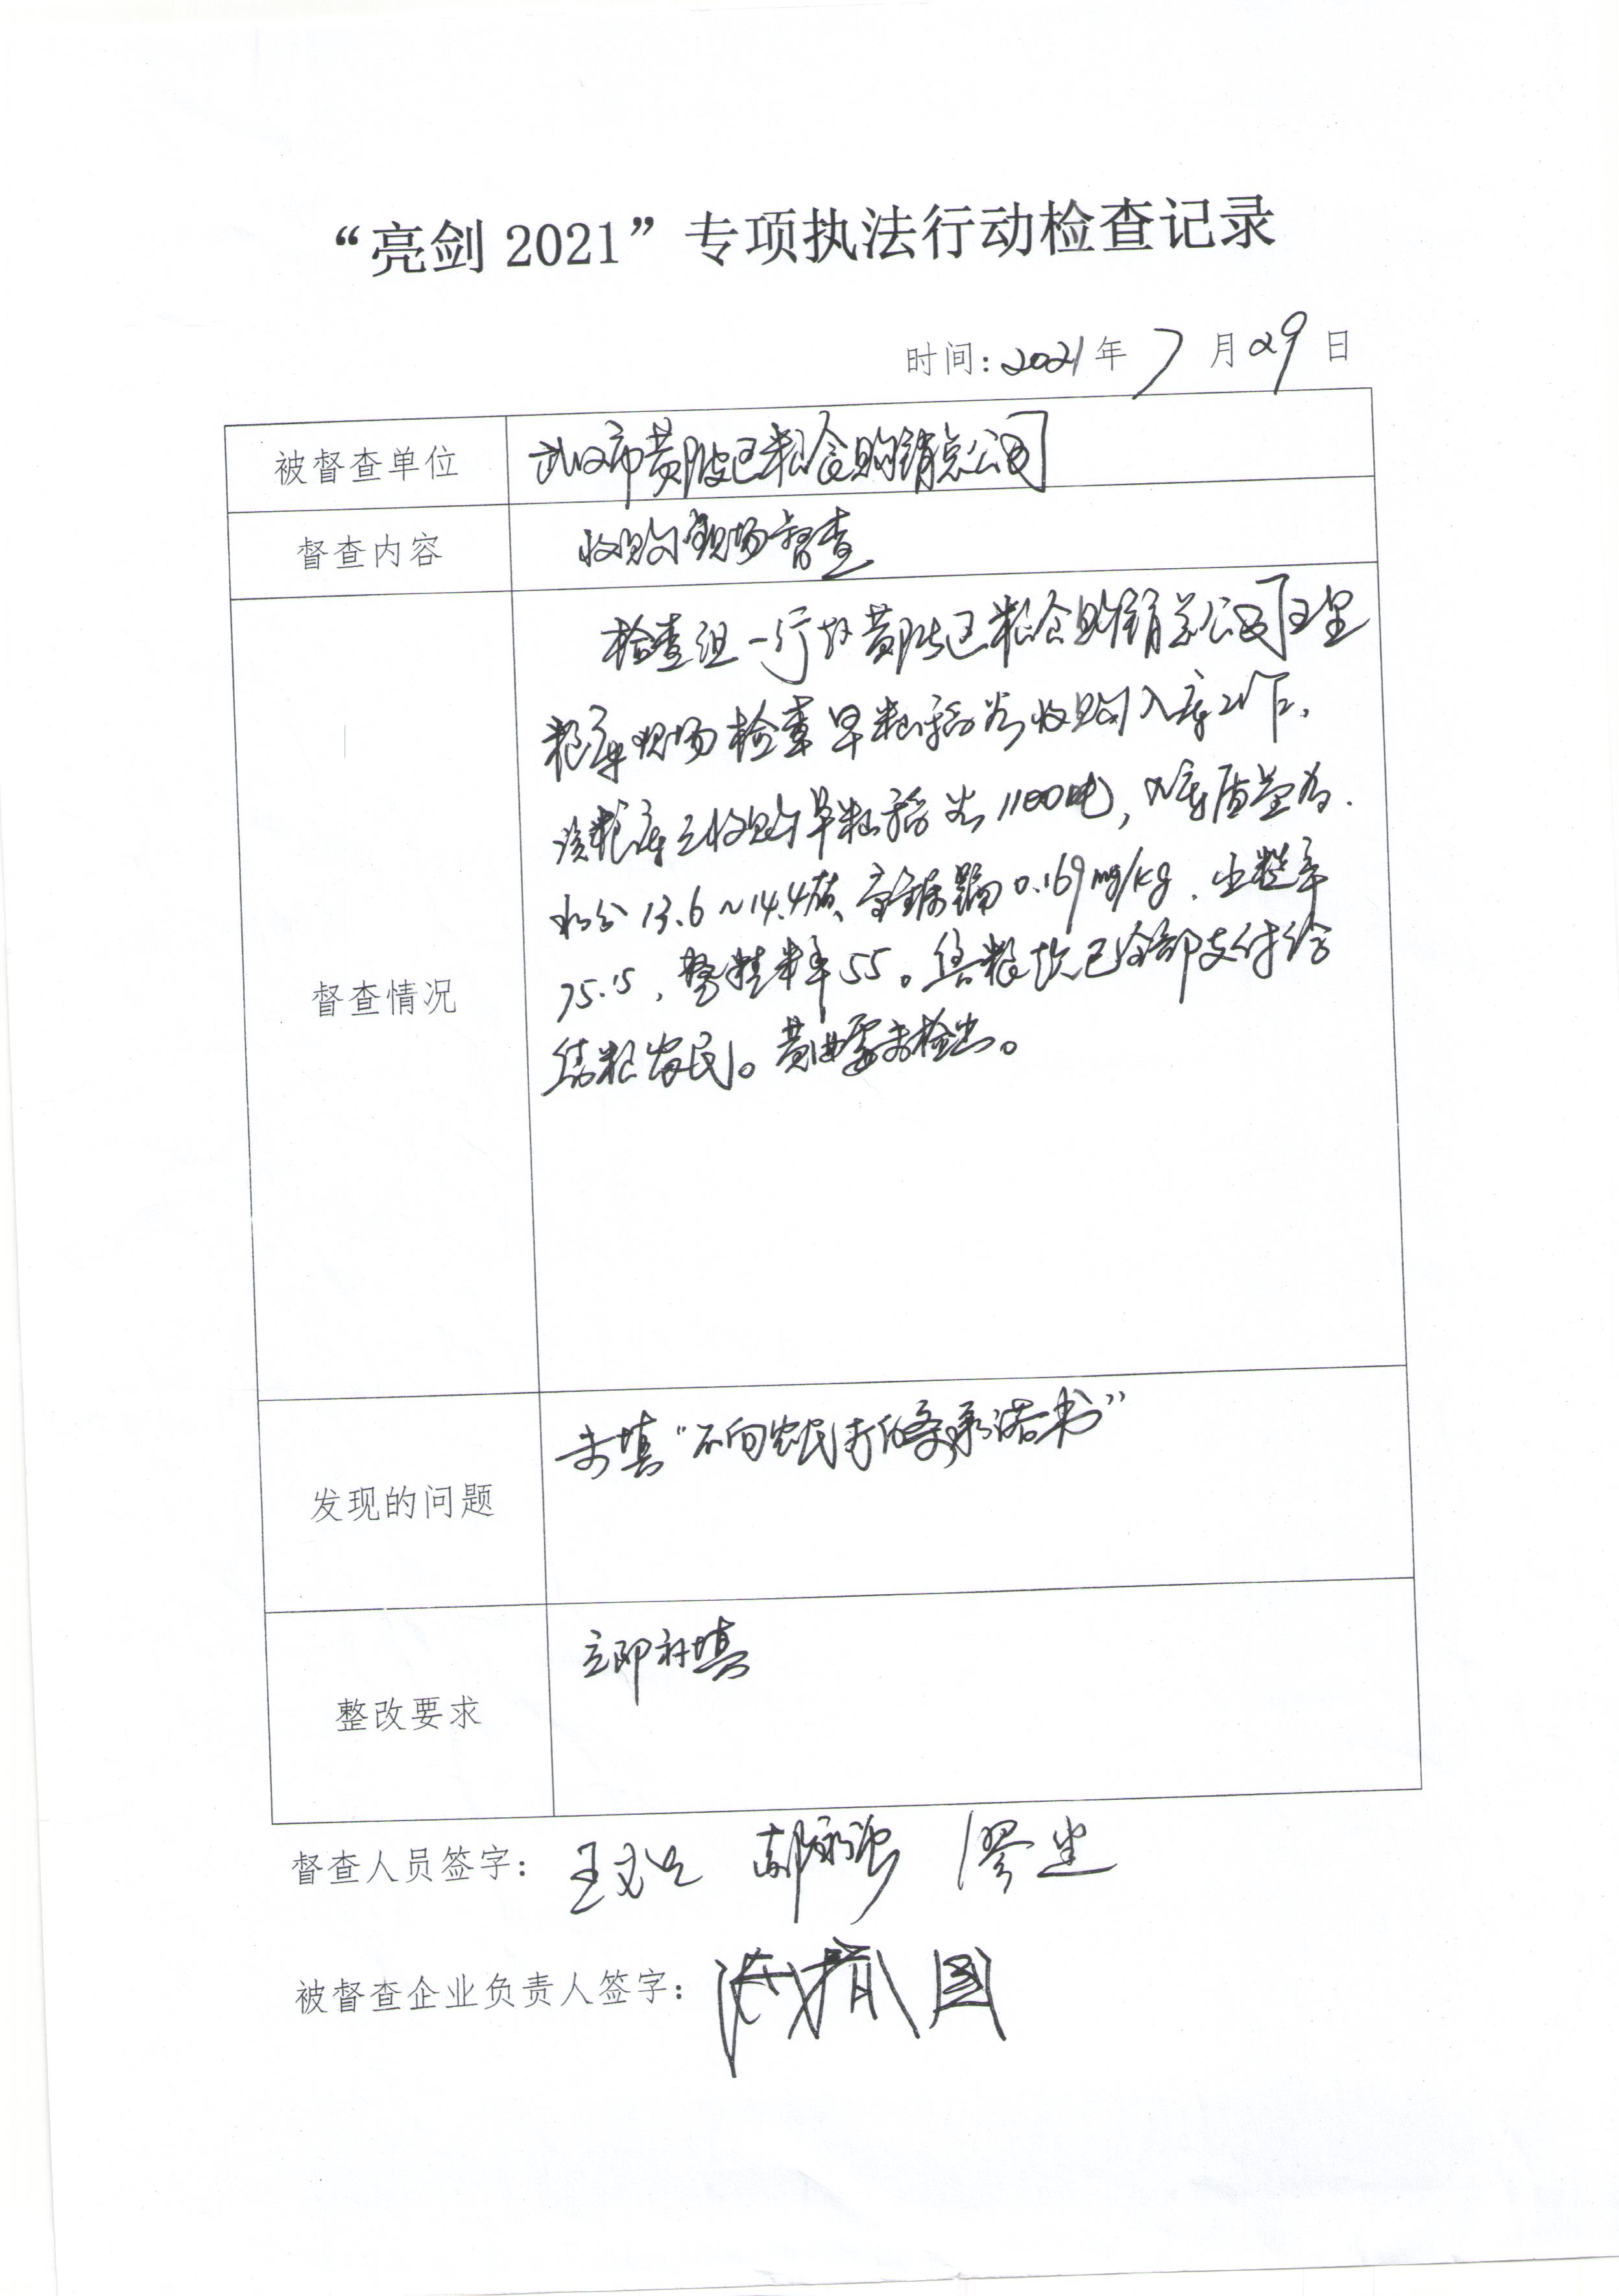 “亮剑 2021”专项执法行动检查记录
时间：2021年 7 月 29 日
被督查单位 武汉市黄陂区粮食购销总公司
督查内容 收购现场督查
督查情况
检查组一行对黄陂区粮食购销总公司
粮库现场检查早籼稻谷收购入库工作，
该粮库已收购早籼稻谷1100吨，入库质量为：
水分13.6~14.4、重金属镉0.169mg/kg、出糙率
75.15，整精米率55。售粮款已全部支付给
售粮农民。黄曲霉未检出。
发现的问题 未填“不向农民打白条承诺书”
整改要求 立即补填
督查人员签字： 胡 廖
被督查企业负责人签字： 国